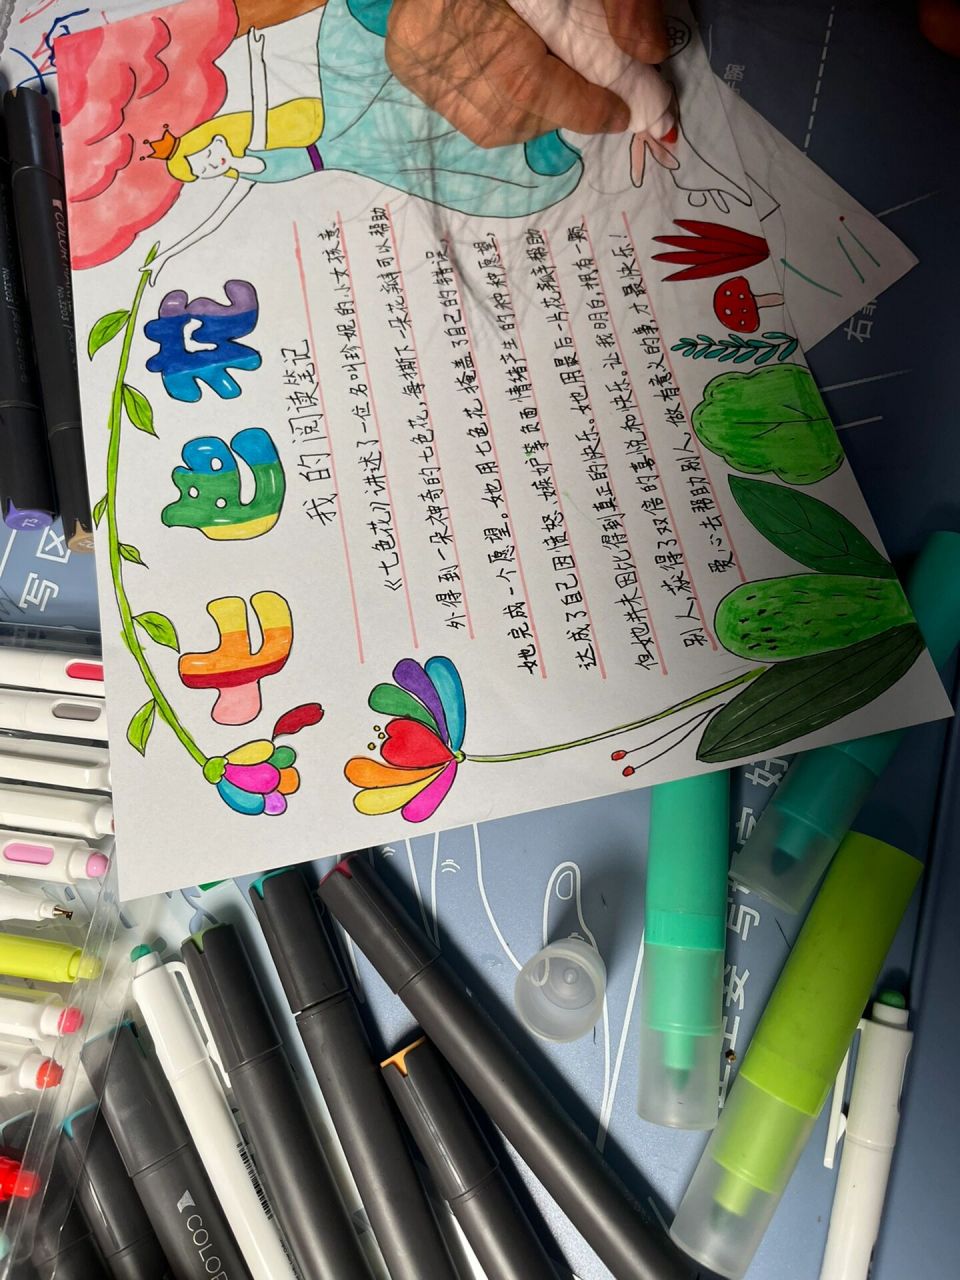 七色花
我的阅读笔记
《七色花》讲述了一位名叫珍妮的小女孩意
外得到一朵神奇的七色花，每撕下一朵花瓣可以帮助
她完成一个愿望。她用七色花掩盖了自己的错误，
达成了自己因愤怒、嫉妒等负面情绪产生的种种愿望，
但她并未因此得到真正的快乐。她用最后一片花瓣帮助
别人，获得了双倍的喜悦和快乐。让我明白，拥有一颗
爱心去帮助别人，做有意义的事，才最快乐！
COLOR
COLOR
写区